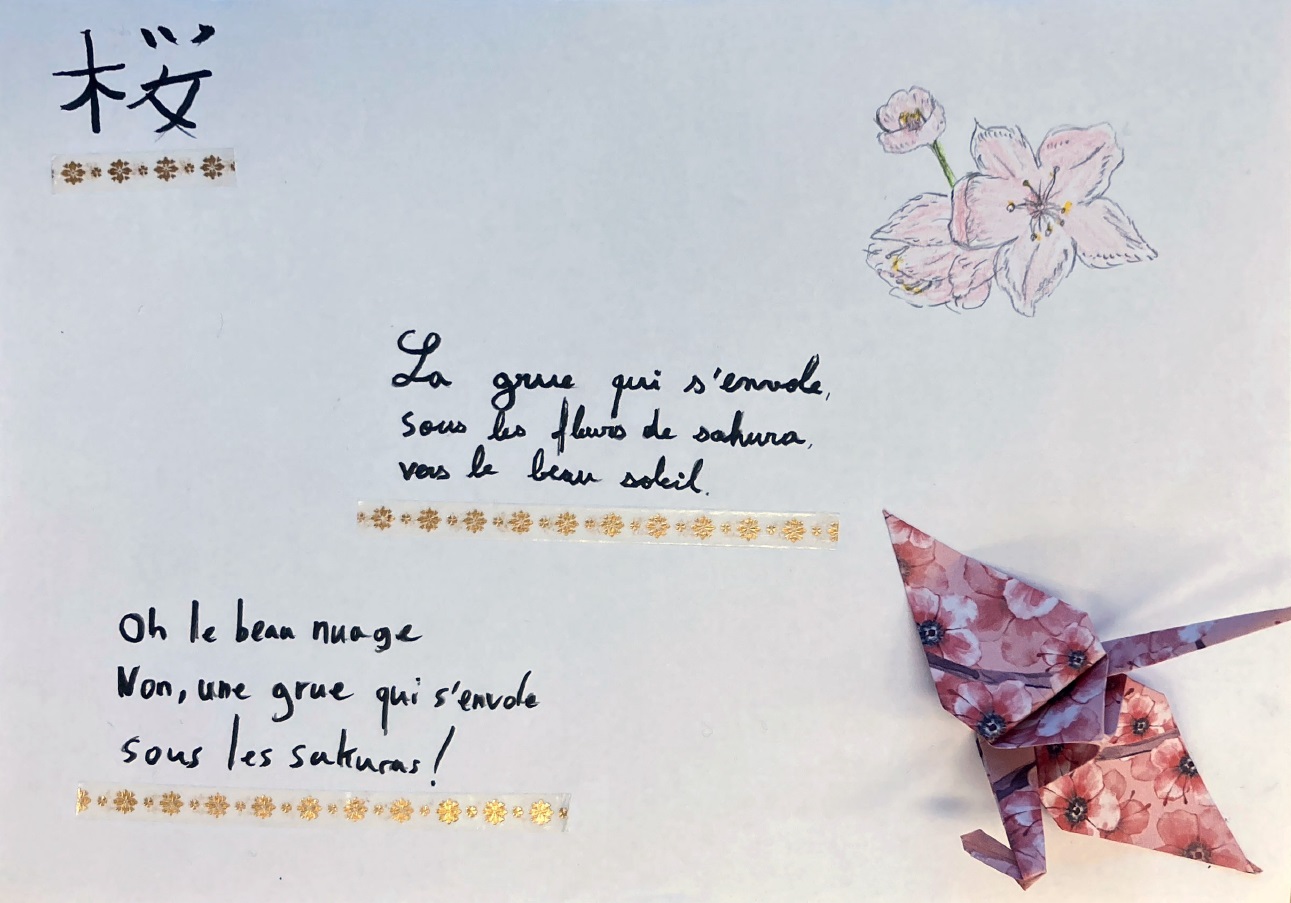 桜
La grue qui s'envole,
sous les fleurs de sakura,
vers le beau soleil.
Oh le beau nuage
Non, une grue qui s'envole
sous les sakuras!